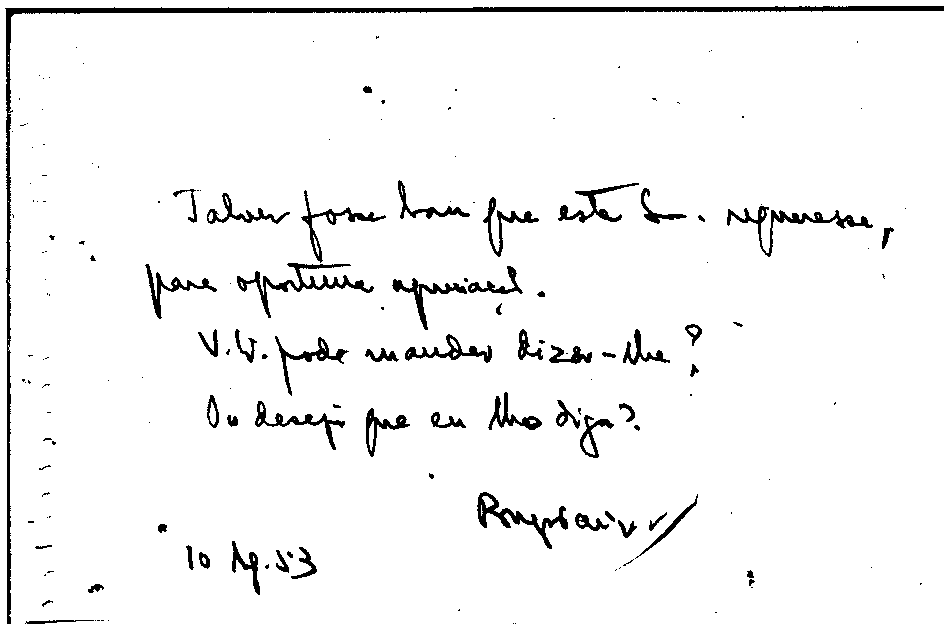 Talvez fosse bom que este Sr. requeresse,
para oportuna apreciação.
V. pode mandar dizer-lhe?
Ou deseja que eu lho diga?
10 Ag. 53